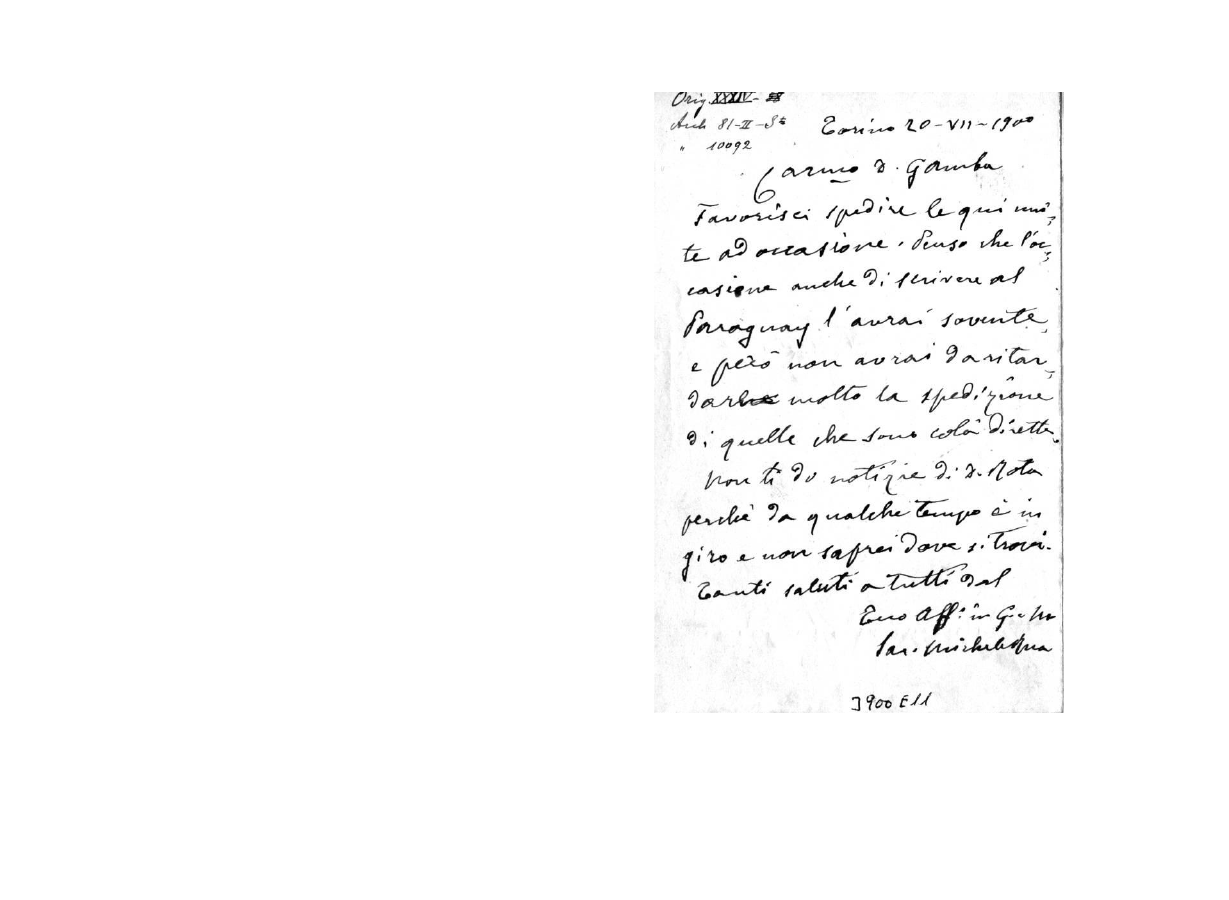 Orig XXXIV-
Arch 81-II-S^a
" 10092
Torino 20-VII-1900
Carmo D. Gamba
Favorisci spedire le qui uni-
te ad occasione. Penso che l'oc-
casione anche di scrivere al
Paraguay l'avrai sovente,
e però non avrai da ritar-
dar molto la spedizione
di quelle che sono colà dirette.
Non ti do notizie di D. Rota
perchè da qualche tempo è in
giro e non saprei dove si trovi.
Tanti saluti a tutti dal
Tuo Aff: in G. e M
Sac. Michele Rua
1900 E11